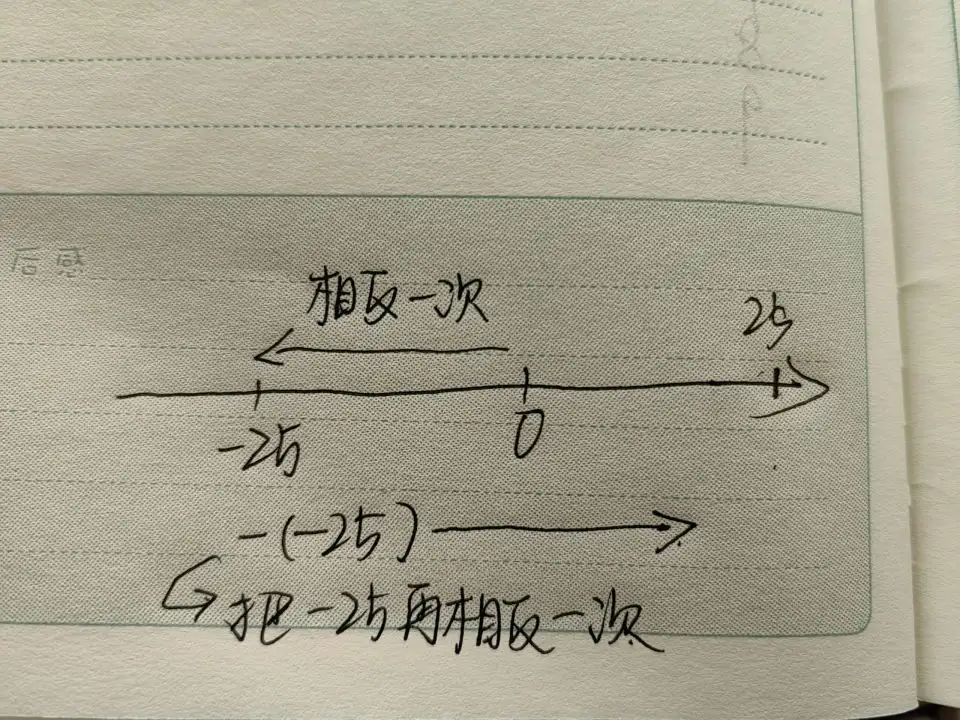 后感
相反一次
25
-25
0
-(-25)
把-25再相反一次